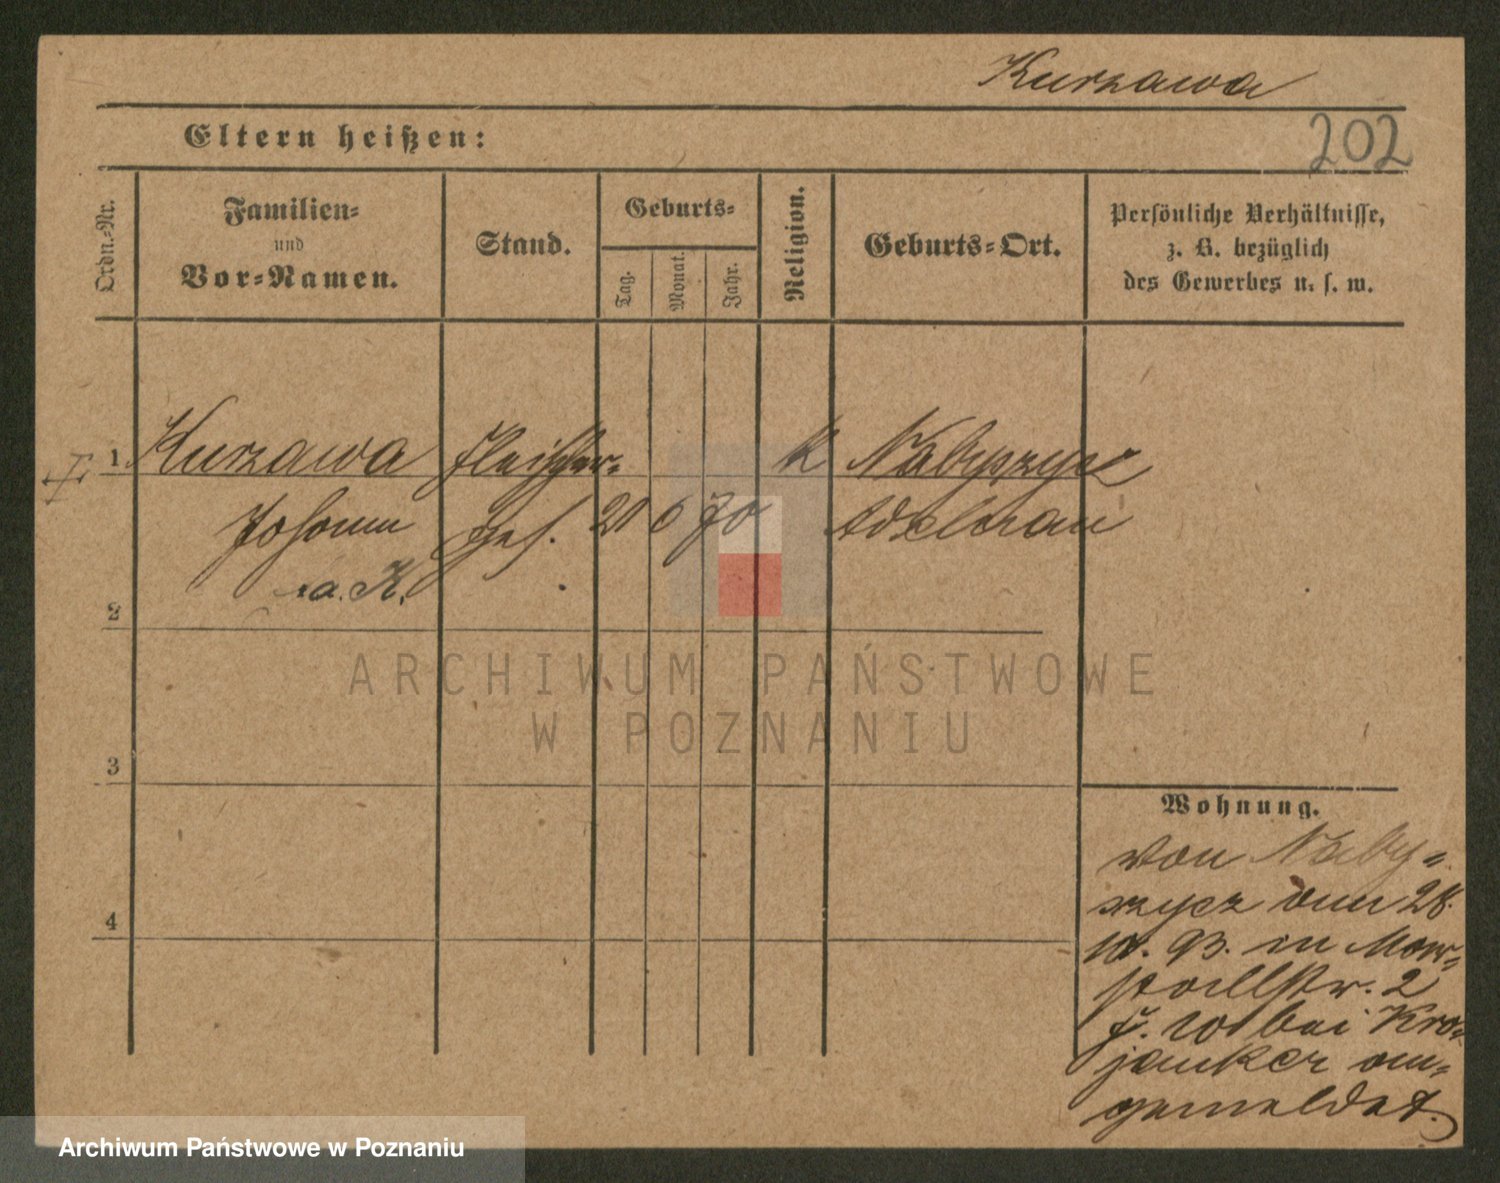 Kurzawa
202
Eltern heißen:
Ordn.-Nr.
Familien-
und
Vor-Namen.
Stand.
Geburts-
Tag.
Monat.
Jahr.
Religion.
Geburts-Ort.
Persönliche Verhältnisse,
z. B. bezüglich
des Gewerbes u. s. w.
1 Kurzawa Fleischer- k Nabyszyce
Johann Ges. 21 6 70 Adelnau
a. K.
2
3
4
ARCHIWUM PAŃSTWOWE
W POZNANIU
Wohnung.
Von Naby-
szycz am 28.
10. 93. in Mar-
stallstr. 2
bei Kro-
janker an-
gemeldet.
Archiwum Państwowe w Poznaniu